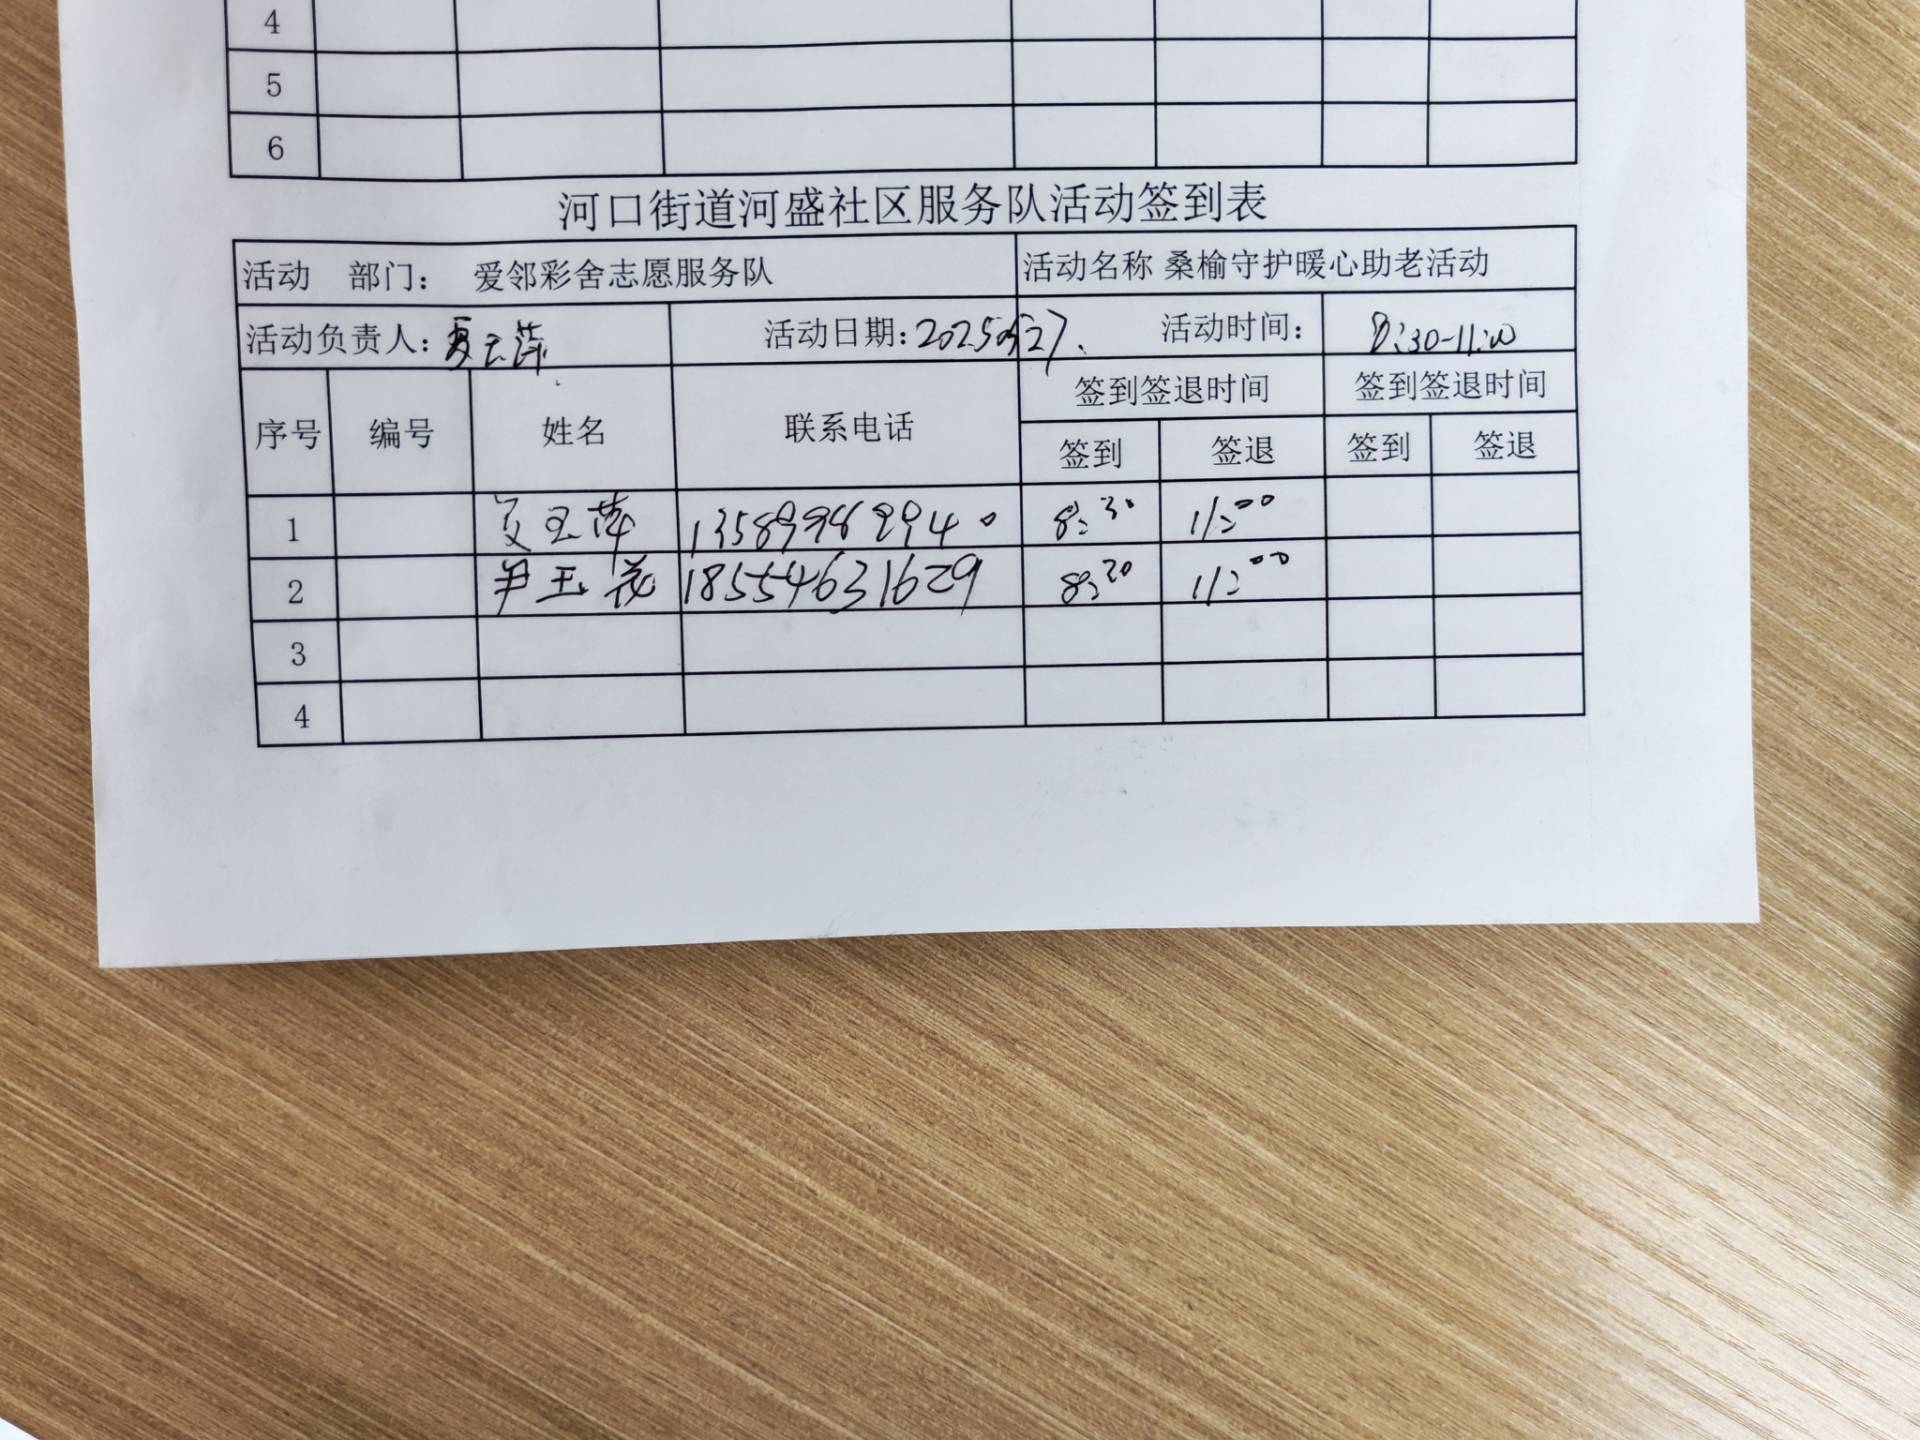 4
5
6
河口街道河盛社区服务队活动签到表
活动 部门: 爱邻彩舍志愿服务队 活动名称 桑榆守护暖心助老活动
活动负责人: 活动日期:20250527. 活动时间: 8:30-11:00
序号 编号 姓名 联系电话 签到签退时间 签到签退时间
签到 签退 签到 签退
1 13589982940 8:30 11:00
2 尹玉花 18554631629 8:30 11:00
3
4